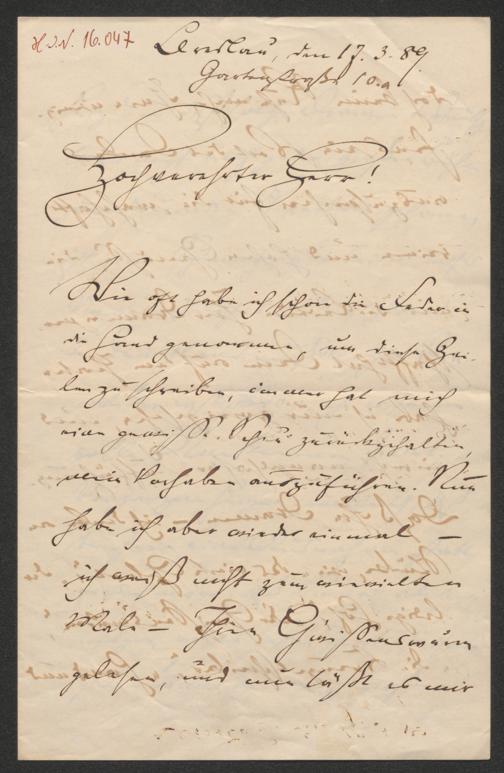 H.I.N. 16.047
Breslau, den 17. 3. 89
Gartenstraße 10a
Hochverehrter Herr!
Wie oft habe ich schon die Feder in
die Hand genommen, um diese Zei-
len zu schreiben, immer hat mich
eine gewisse Scheu zurückgehalten,
mein Vorhaben auszuführen. Nun
habe ich aber wieder einmal –
ich weiß nicht zum wievielten
Male – Ihren Gwissenswurm
gelesen, und nun läßt es mir